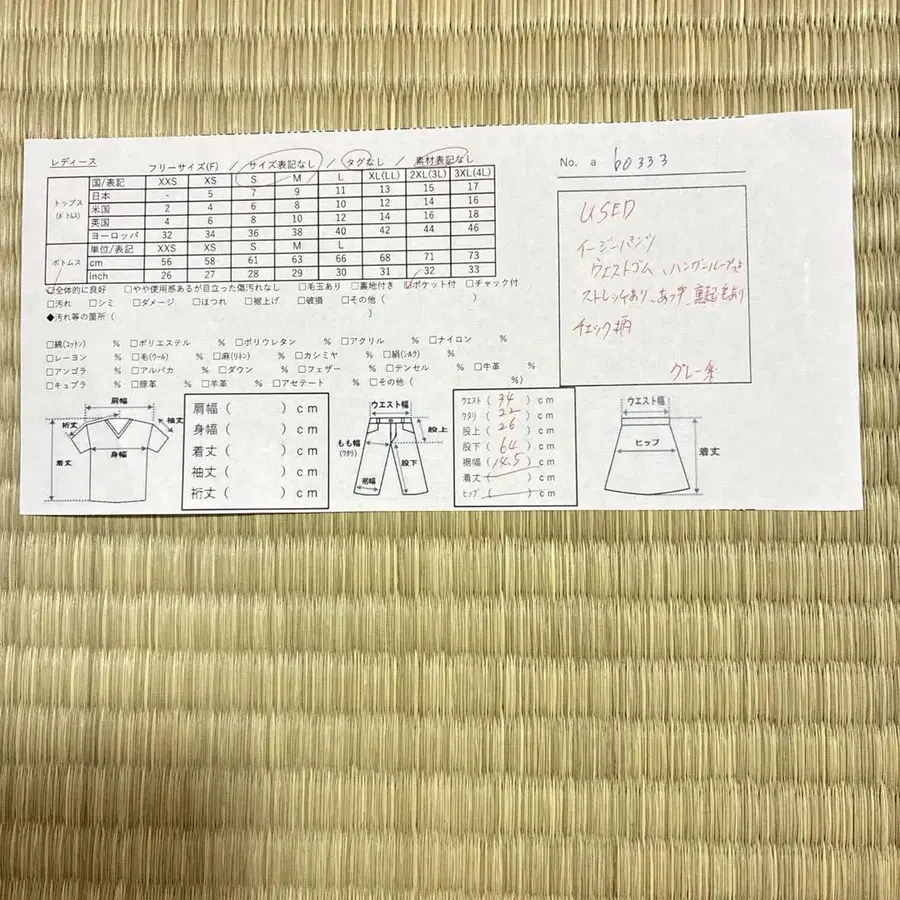 レディース
フリーサイズ(F) / サイズ表記なし / タグなし / 素材表記なし
トップス
(ﾎﾞﾄﾑｽ)
国/表記 XXS XS S M L XL(LL) 2XL(3L) 3XL(4L)
日本 - 5 7 9 11 13 15 17
米国 2 4 6 8 10 12 14 16
英国 4 6 8 10 12 14 16 18
ヨーロッパ 32 34 36 38 40 42 44 46
ボトムス
単位/表記 XXS XS S M L
cm 56 58 61 63 66 68 71 73
inch 26 27 28 29 30 31 32 33
☑全体的に良好 □やや使用感あるが目立った傷汚れなし □毛玉あり □裏地付き ☑ポケット付 □チャック付
□汚れ □シミ □ダメージ □ほつれ □裾上げ □破損 □その他 ( )
◆汚れ等の箇所 ( )
□綿(ｺｯﾄﾝ) % □ポリエステル % □ポリウレタン % □アクリル % □ナイロン %
□レーヨン % □毛(ｳｰﾙ) % □麻(ﾘﾈﾝ) % □カシミヤ % □絹(ｼﾙｸ) %
□アンゴラ % □アルパカ % □ダウン % □フェザー % □テンセル % □牛革 %
□キュプラ % □豚革 % □羊革 % □アセテート % □その他 ( %)
No. a b0333
USED
イージーパンツ
ウエストゴム、ハンガーループ
ストレッチあり、あつ手、裏起毛あり
チェック柄
グレー系
肩幅
裄丈
袖丈
身幅
着丈
肩幅 ( ) cm
身幅 ( ) cm
着丈 ( ) cm
袖丈 ( ) cm
裄丈 ( ) cm
ウエスト幅
股上
もも幅
(ﾜﾀﾘ)
股下
裾幅
ウエスト ( 34 ) cm
ワタリ ( 22 ) cm
股上 ( 26 ) cm
股下 ( 64 ) cm
裾幅 ( 14.5 ) cm
着丈 ( ) cm
ﾋｯﾌﾟ ( ) cm
ウエスト幅
ヒップ
着丈